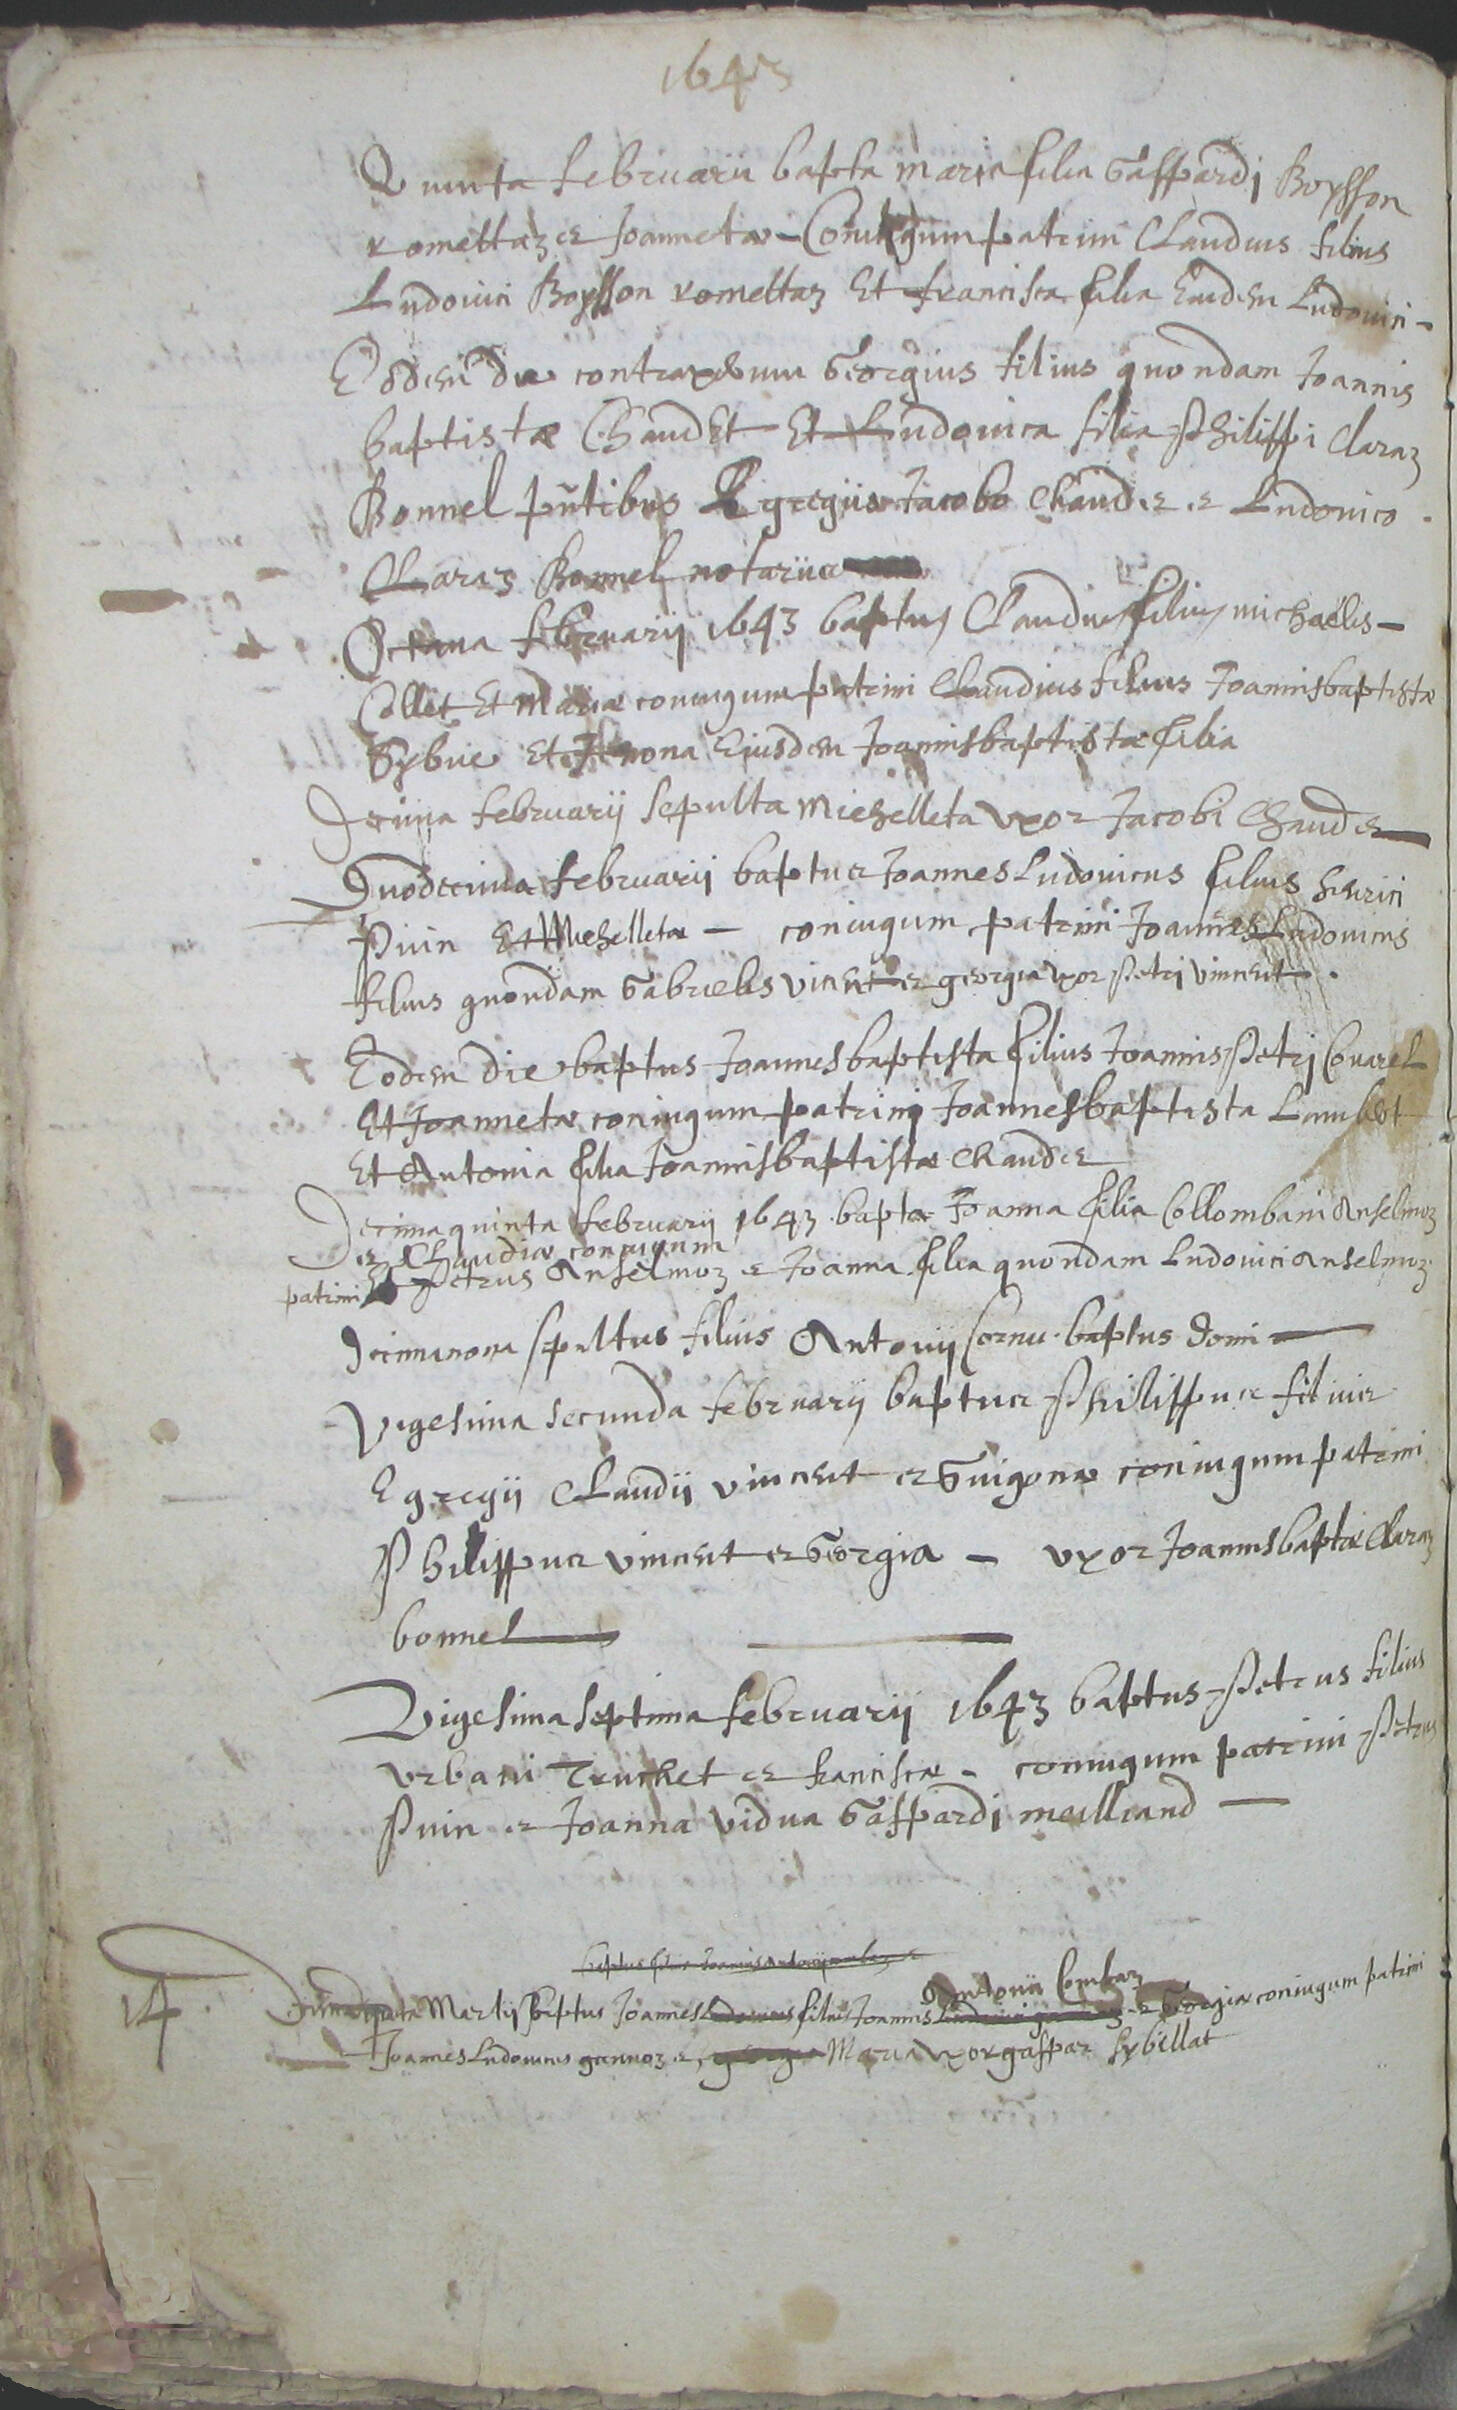 1643
Quinta februarii bapta maria filia Gaspardi Boysson
romettaz et Joannetæ - Coniugum patrini Claudius filius
Ludovici Boysson romettaz Et francisca filia Eiusdem Ludovici -
Eodem die contraxerunt Georgius filius quondam Joannis
baptistæ Chaudet Et Ludovica filia Philippi Claraz
Bonnel pntibus Egregiis Jacobo Chaudet et Ludovico
Claraz Bonnel notariis
Octava februarij 1643 baptus Claudius filius michaëlis -
Collet Et Mariæ coniugum patrini Claudius filius Joannisbaptistæ
Sybue Et Eiusdem Joannisbaptistæ filia
Decima februarij sepulta Michelleta Uxor Jacobi Chaudet
Duodecima februarii baptus Joannes Ludovicus filius henrici
Puin Et Michelletæ - coniugum patrini Joannes Ludovicus
filius quondam Gabrielis vincent et georgia uxor Petri vincent.
Eodem die baptus Joannesbaptista filius Joannis Petri Covarel
Et Joannetæ coniugum patrini Joannesbaptista Lambert
Et Antonia filia Joannisbaptistæ Chaudet
Decimaquinta februarij 1643 bapta Joanna filia Collombani Anselmoz
et Claudiæ coniugum
patrini Petrus Anselmoz et Joanna filia quondam Ludovici Anselmoz
Decimanona sepultus filius Antonij Cornu baptus domi
Vigesima secunda februarij baptus Philippus filius
Egregij Claudij vincent et Guigonæ coniugum patrini
Philippus vincent et Georgia - uxor Joannisbaptæ Claraz
bonnel
Vigesima septima februarij 1643 baptus Petrus filius
Urbani Truchet et franciscæ - coniugum patrini Petrus
Puin et Joanna vidua Gaspardi meilland
baptus filius Joannis Antonij
Antonii Combaz
14. Decimaquarta Martij baptus Joannes Ludovicus filius Joannis et Georgiæ coniugum patrini
Joannes Ludovicus gannoz et georgia Maria uxor gaspar Sybellat